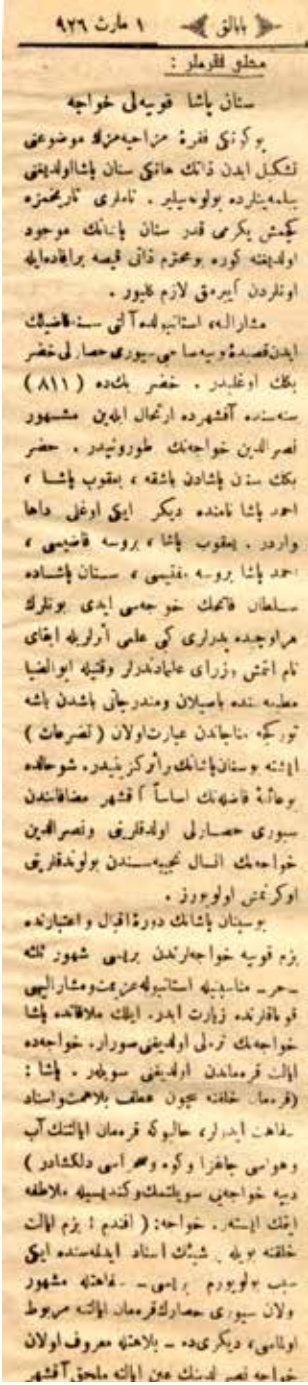 بابالق ١ مارت ٩٢٦
محللی فقرەلر :
سنان پاشا قونیەلی خواجه
بو كونكی فقرۀ مزاحیەمزك موضوعنی
تشكیل ایدن ذاتك هانكی سنان پاشا اولدیغنی
بیلمەینلرده بولونەبیلیر . ناملری تاریخمزه
كچمش یكرمی قدر سنان پاشانك موجود
اولدیغنه كوره بو محترم ذاتی قیصه بر افاده ایله
اونلردن آییرمق لازم كلیور .
مشارالیه، استانبولده آلتی سنه قاضیلك
ایدن قصیدۀ نونیه صاحبی سیوری حصارلی خضر
بكك اوغلیدر . خضر بك ده (٨١١)
سنه سنده آقشهرده ارتحال ایلەین مشهور
نصرالدین خواجەنك طورونیدر . خضر
بكك سنان پاشادن باشقه ، یعقوب پاشا ،
احمد پاشا نامنده دیكر ایكی اوغلی داها
واردر . یعقوب پاشا ، بروسه قاضیسی ،
احمد پاشا بروسه مفتیسی ، سنان پاشاده
سلطان فاتحك خوجەسی ایدی بونلرك
هر اوچیده پدرلری كبی علمی اثرلریله ابقای
نام ایتمش وزرای علمادندرلر وقتیله ابوالضیا
مطبعەسنده باصیلان ومندرجاتی باشدن باشه
توركجه مناجاتدن عبارت اولان ( تضرعات )
ایشته بو سنان پاشانك اثر كزینیدر. شو حالده
بو عائلۀ فاضلەنك اساساً آقشهر مضافاتندن
سیوری حصارلی اولدقلرینی ونصرالدین
خواجەنك انسال نجیبەسندن بولوندقلرینی
اوكرنمش اولویورز .
بو سنان پاشانك دورۀ اقبال و اعتبارنده
بزم قونیه خواجەلرندن بریسی شهور ثلثه
ـ جر ـ مناسبتیله استانبوله عزیمت ومشارالیهی
قوناقلرنده زیارت ایدر. ایلك ملاقاتده پاشا
خواجەنك نرەلی اولدیغنی صورار. خواجەده
ایالت قرەماندن اولدیغنی سویلر . پاشا :
(قرەمان خلقنه نیچون عطف بلاهت واسناد
سفاهت ایدرلر، حالبوكه قرەمان ایالتنك آب
وهواسی جانفزا وكوه وصحراسی دلكشادر )
دییه خواجەیی سویلتمك وكندیسیله ملاطفه
ایتمك ایستر. خواجه: ( افندم ! بزم ایالت
خلقنه بویله بر شیئك اسناد ایدلمەسنده ایكی
سبب بولویورم بریسی ـ سفاهتله مشهور
اولان سیوری حصارك قرەمان ایالتنه مربوط
اولماسی، دیكری ده ـ بلاهتله معروف اولان
خواجه نصرالدینك عین ایالته ملحق آقشهر